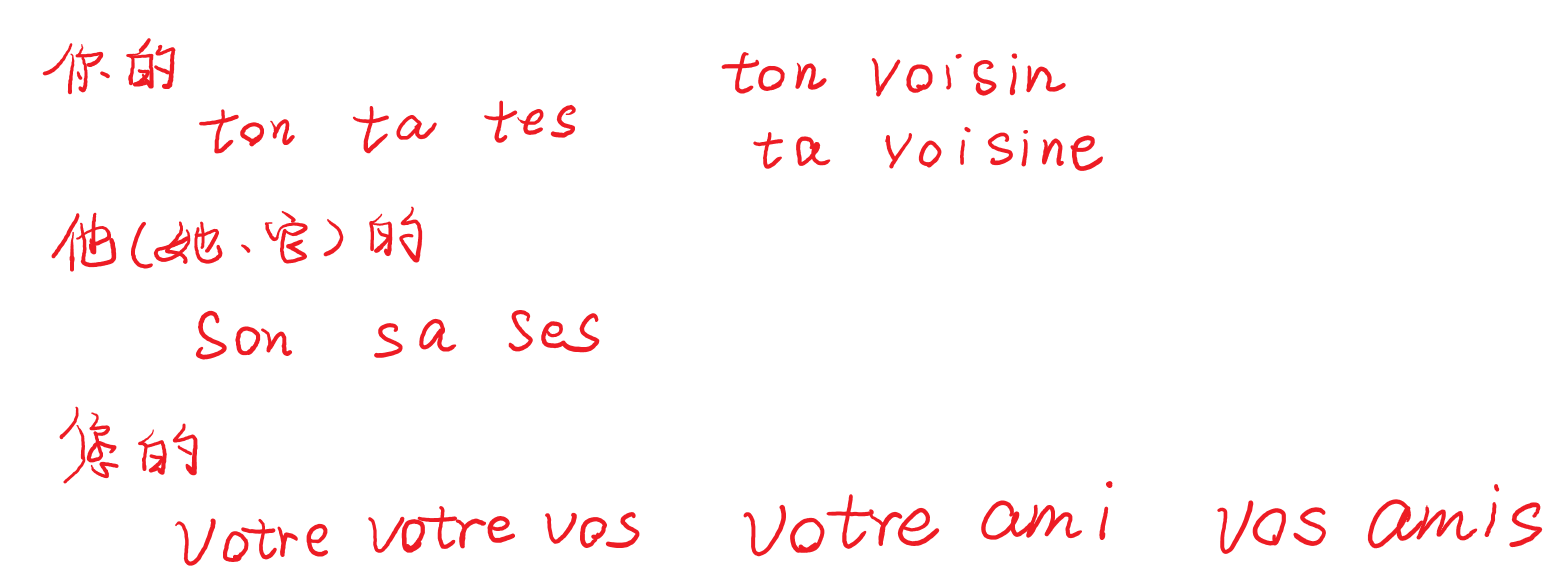 你的 ton voisin
ton ta tes ta voisine
他(她、它)的
son sa ses
您的
votre votre vos votre ami vos amis